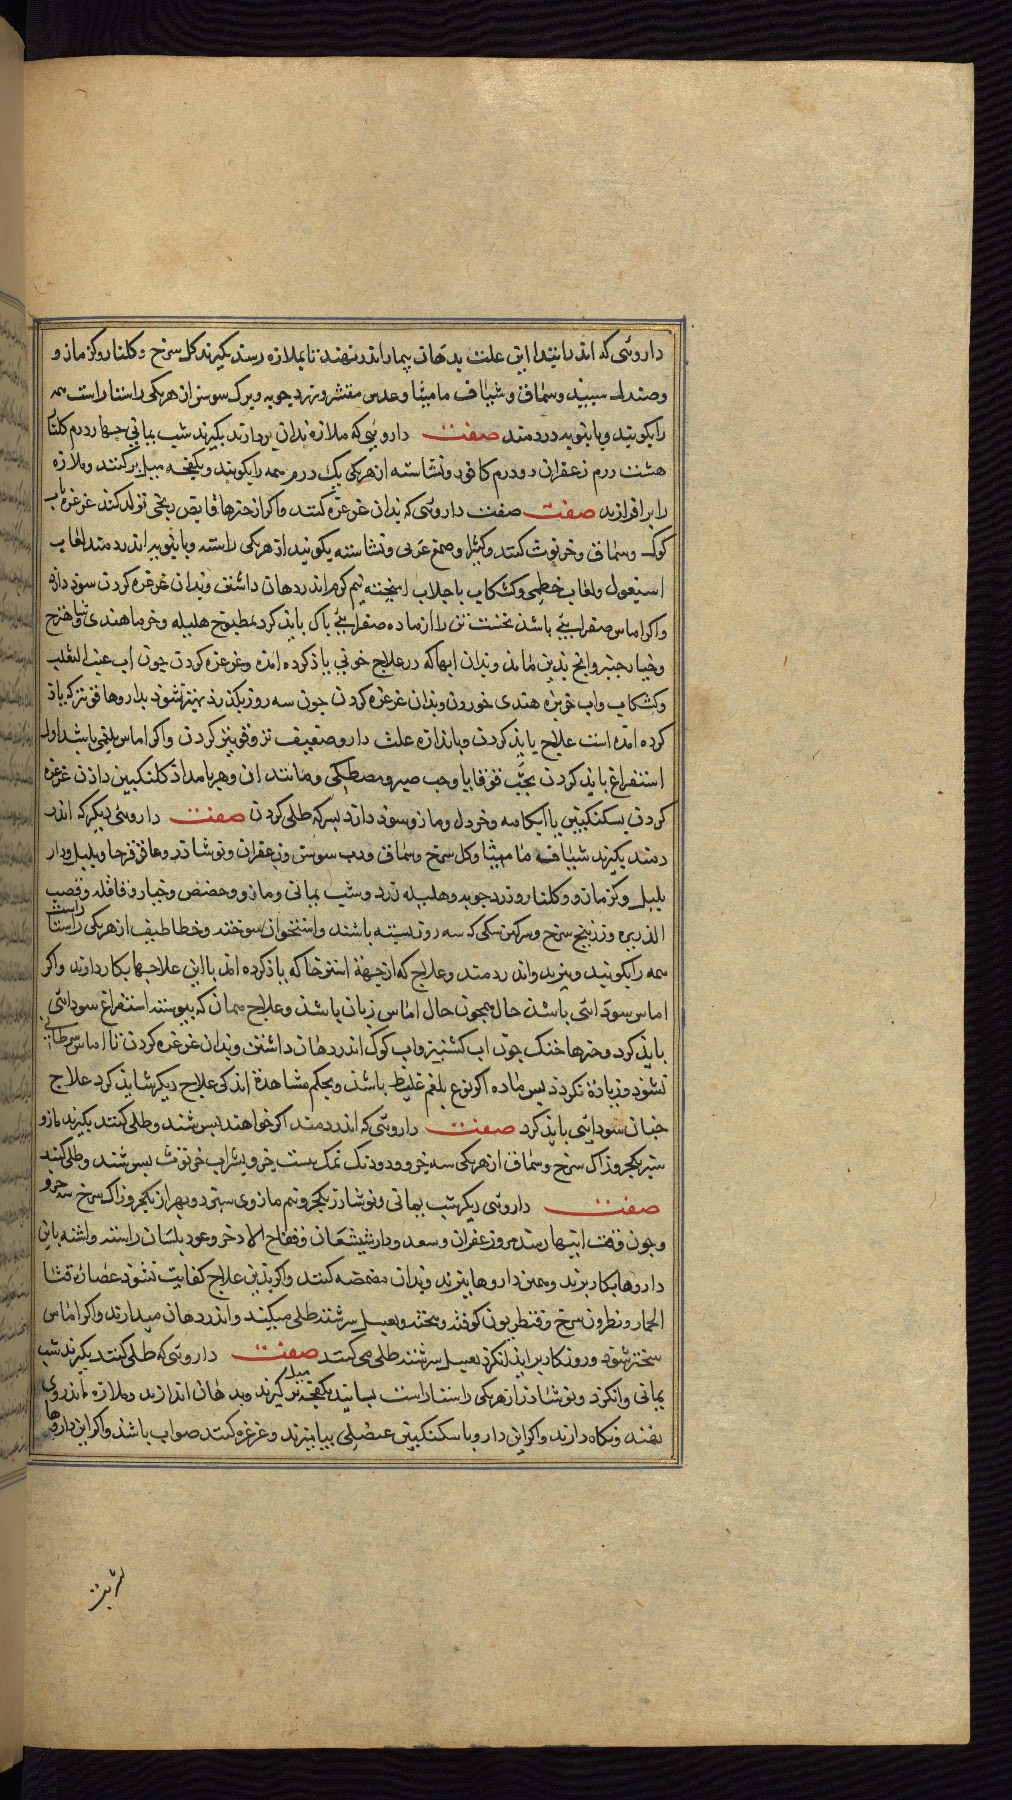 داروئی که اندر ابتدا این علت بدهان بیمار اندر نهند تا بملازه رسد بکیرند کل سرخ و کلنار و کزمازو
و صندل سبید و سماق و شیاف مامیثا و عدس مقشر و زرد جوبه و برک سوسن از هر یکی راستا راست همه
را بکوبند و ببزند و دردمند صفت داروئی که ملازه بدان بردارند بکیرند شب یمانی جهار درم کلنار
هشت درم زعفران دو درم کافور و نشاسته از هر یکی یک درم همه را بکوبند و بکفجه میل بر کنند و ملازه
را بر افرازند صفت صفت داروئی که بدان غرغره کنند و اکر از جیزها قابض رنجی تولد کند غرغره باب
کوک و سماق و خرنوث کنند و کثیرا و صمغ عربی و نشاسته بکوبند از هر یکی راسته و ببزند و اندر دمند لعاب
اسبغول و لعاب خطمی و کشکاب با جلاب امیخته نیم کرم اندر دهان داشتن و بدان غرغره کردن سود دارد
و اکر اماس صفرایی باشذ نخست تن را از ماده صفرایی باک بایذ کرد بمطبوخ هلیله و خرما هندی و شاهترج
و خیارجنبر و انج بذین ماند و بدان ابها که در علاج خونی یاذ کرده امذه و غرغره کردن جون اب عنب الثعلب
و کشکاب و اب خربزه هندی خوردن و بدان غرغره کردن جون سه روز بکذرد بهتر شوذ بداروها قوی‌تر که یاذ
کرده امذه است علاج بایذ کردن و باندازه علت دارو ضعیف تر و قوی تر کردن و اکر اماس بلغمی باشد اول
استفراغ بایذ کردن بحب قوقایا و حب صبر و مصطکی و مانند ان و هر بامداذ کلنکبین داذن غرغره
کردن بسکنکبین یا ابکامه و خردل و مازو سوذ دارد بسرکه طلی کردن صفت داروئی دیکر که اندر
دمند بکیرند شیاف مامیثا و کل سرخ و سماق و رب سوس و زعفران و نوشادر و عاقرقرحا و بلبل و دار
بلبل و کزمازو و کلنار و زرد جوبه و هلیله زرد و شب یمانی و مازو و حضض و خیار و قاقله و قصب
الذریره و زرنیخ سرخ و سرکین سکی که سه روز بسته باشند و استخوان سوخته و خطاطیف از هر یکی راستا راست
همه را بکوبند و ببزند و اندر دمند و علاج که از جهة استرخا که یاذ کرده اند با این علاجها بکار دارند و اکر
اماس سوذائی باشذ حال همجون حال اماس زبان باشذ و علاج همان که بیوسته استفراغ سودائی
بایذ کرد و جیزها خنک جون اب کشنیز و اب کوک اندر دهان داشتن و بدان غرغره کردن تا اماس سرطانی
نشوذ و زیاده نکردذ بس ماده اکر نوع بلغم غلیظ باشذ و بحکم مشاهده اندکی علاج دیکر شایذ کرد علاج
جنان سودائی بایذ کرد صفت داروئی که اندر دمند اکر خواهند بسرشند و طلی کنند بکیرند مازو
سبز یکجزو زاک سرخ و سماق از هر یکی سه جزو و دو دنک نمک بیست جزو بشراب خرنوث بسرشند و طلی کنند
صفت داروئی دیکر شب یمانی و نوشادر یکجزو نیم مازوی سبز دو بهر از یکجزو زاک سرخ سه جزو
و جون وقت انتها رسد مر و زعفران و سعد و دارشیشعان و فقاح الاذخر و عود بلسان راسته راسته باین
داروها بکار برند و همین داروها ببزند و بدان مضمضه کنند و اکر بذین علاج کفایت نشوذ عصاره قثا
الحمار و نطرون سرخ و قنطریون کوفته و بیخته و بعسل سرشته طلی میکنند و اندر دهان میدارند و اکر اماس
سختر شود و روزکار برآید انکزد بعسل سرشته طلی می کنند صفت داروئی که طلی کنند بکیرند شب
یمانی و انکزد و نوشادر از هر یکی راستا راست بسایند بکفجه میل بر کیرند و بدهان اندازند و ملازه بر
نهند و نکاه دارند و اکر این دارو با سکنکبین عنصلی بیامیزند و غرغره کنند صواب باشد و اکر این داروها
شربت